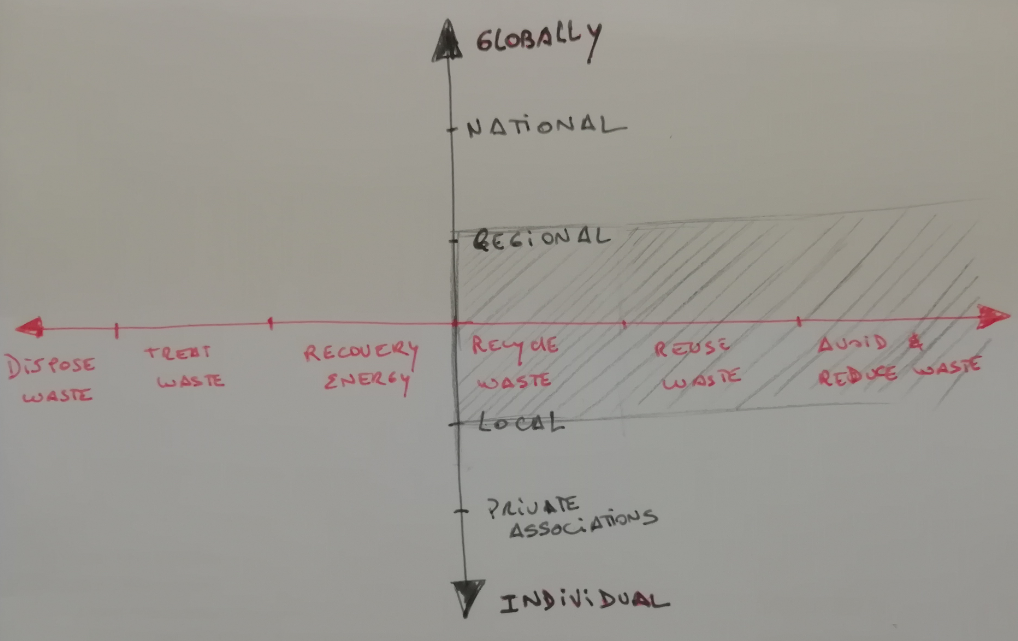 GLOBALLY
NATIONAL
REGIONAL
DISPOSE
WASTE
TREAT
WASTE
RECOVERY
ENERGY
RECYCLE
WASTE
REUSE
WASTE
AVOID &
REDUCE WASTE
LOCAL
PRIVATE
ASSOCIATIONS
INDIVIDUAL